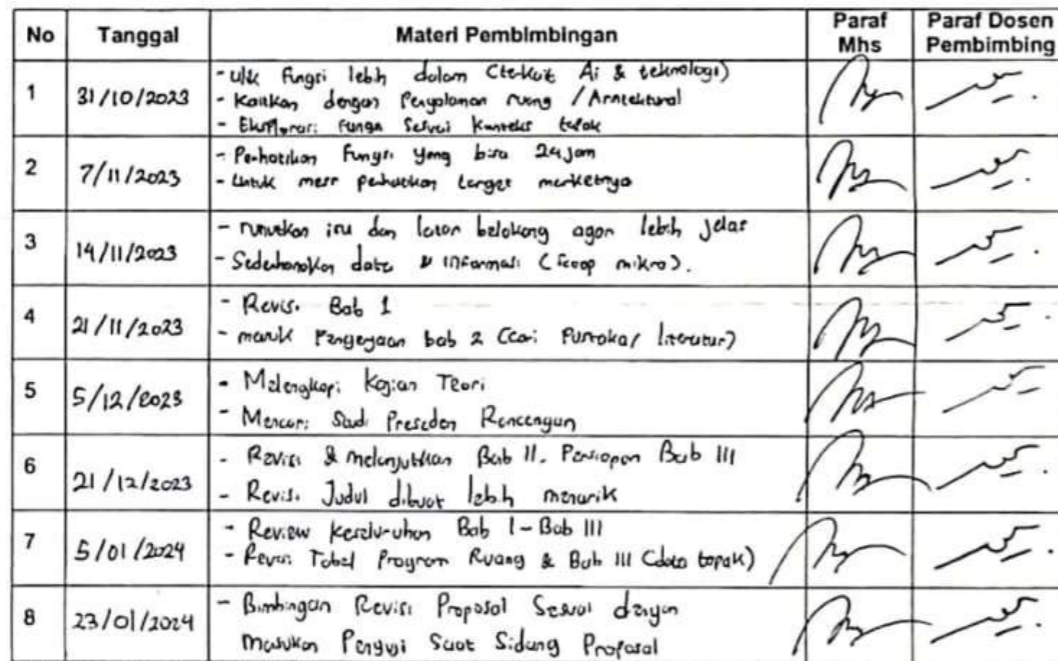 No Tanggal Materi Pembimbingan Paraf Mhs Paraf Dosen Pembimbing
1 31/10/2023
- Ulik Fungsi lebih dalam (terkait Ai & teknologi)
- Kaitkan dengan Pengalaman ruang / Arsitektural
- Eksplorasi Fungsi Sesuai Konteks tapak
2 7/11/2023
- Perhatikan Fungsi yang bisa 24 jam
- Untuk perhatikan target marketnya
3 14/11/2023
- runutkan isu dan latar belakang agar lebih jelas
- Sederhanakan data & informasi (Scoop mikro).
4 21/11/2023
- Revisi Bab 1
- masuk Pengerjaan bab 2 (Cari Pustaka/ literatur)
5 5/12/2023
- Melengkapi Kajian Teori
- Mencari Studi Preseden Rancangan
6 21/12/2023
- Revisi & melanjutkan Bab II. Persiapan Bab III
- Revisi Judul dibuat lebih menarik
7 5/01/2024
- Review keseluruhan Bab I - Bab III
- Revisi Tabel Program Ruang & Bab III (data tapak)
8 23/01/2024
- Bimbingan Revisi Proposal Sesuai dengan
Masukan Penguji Saat Sidang Proposal